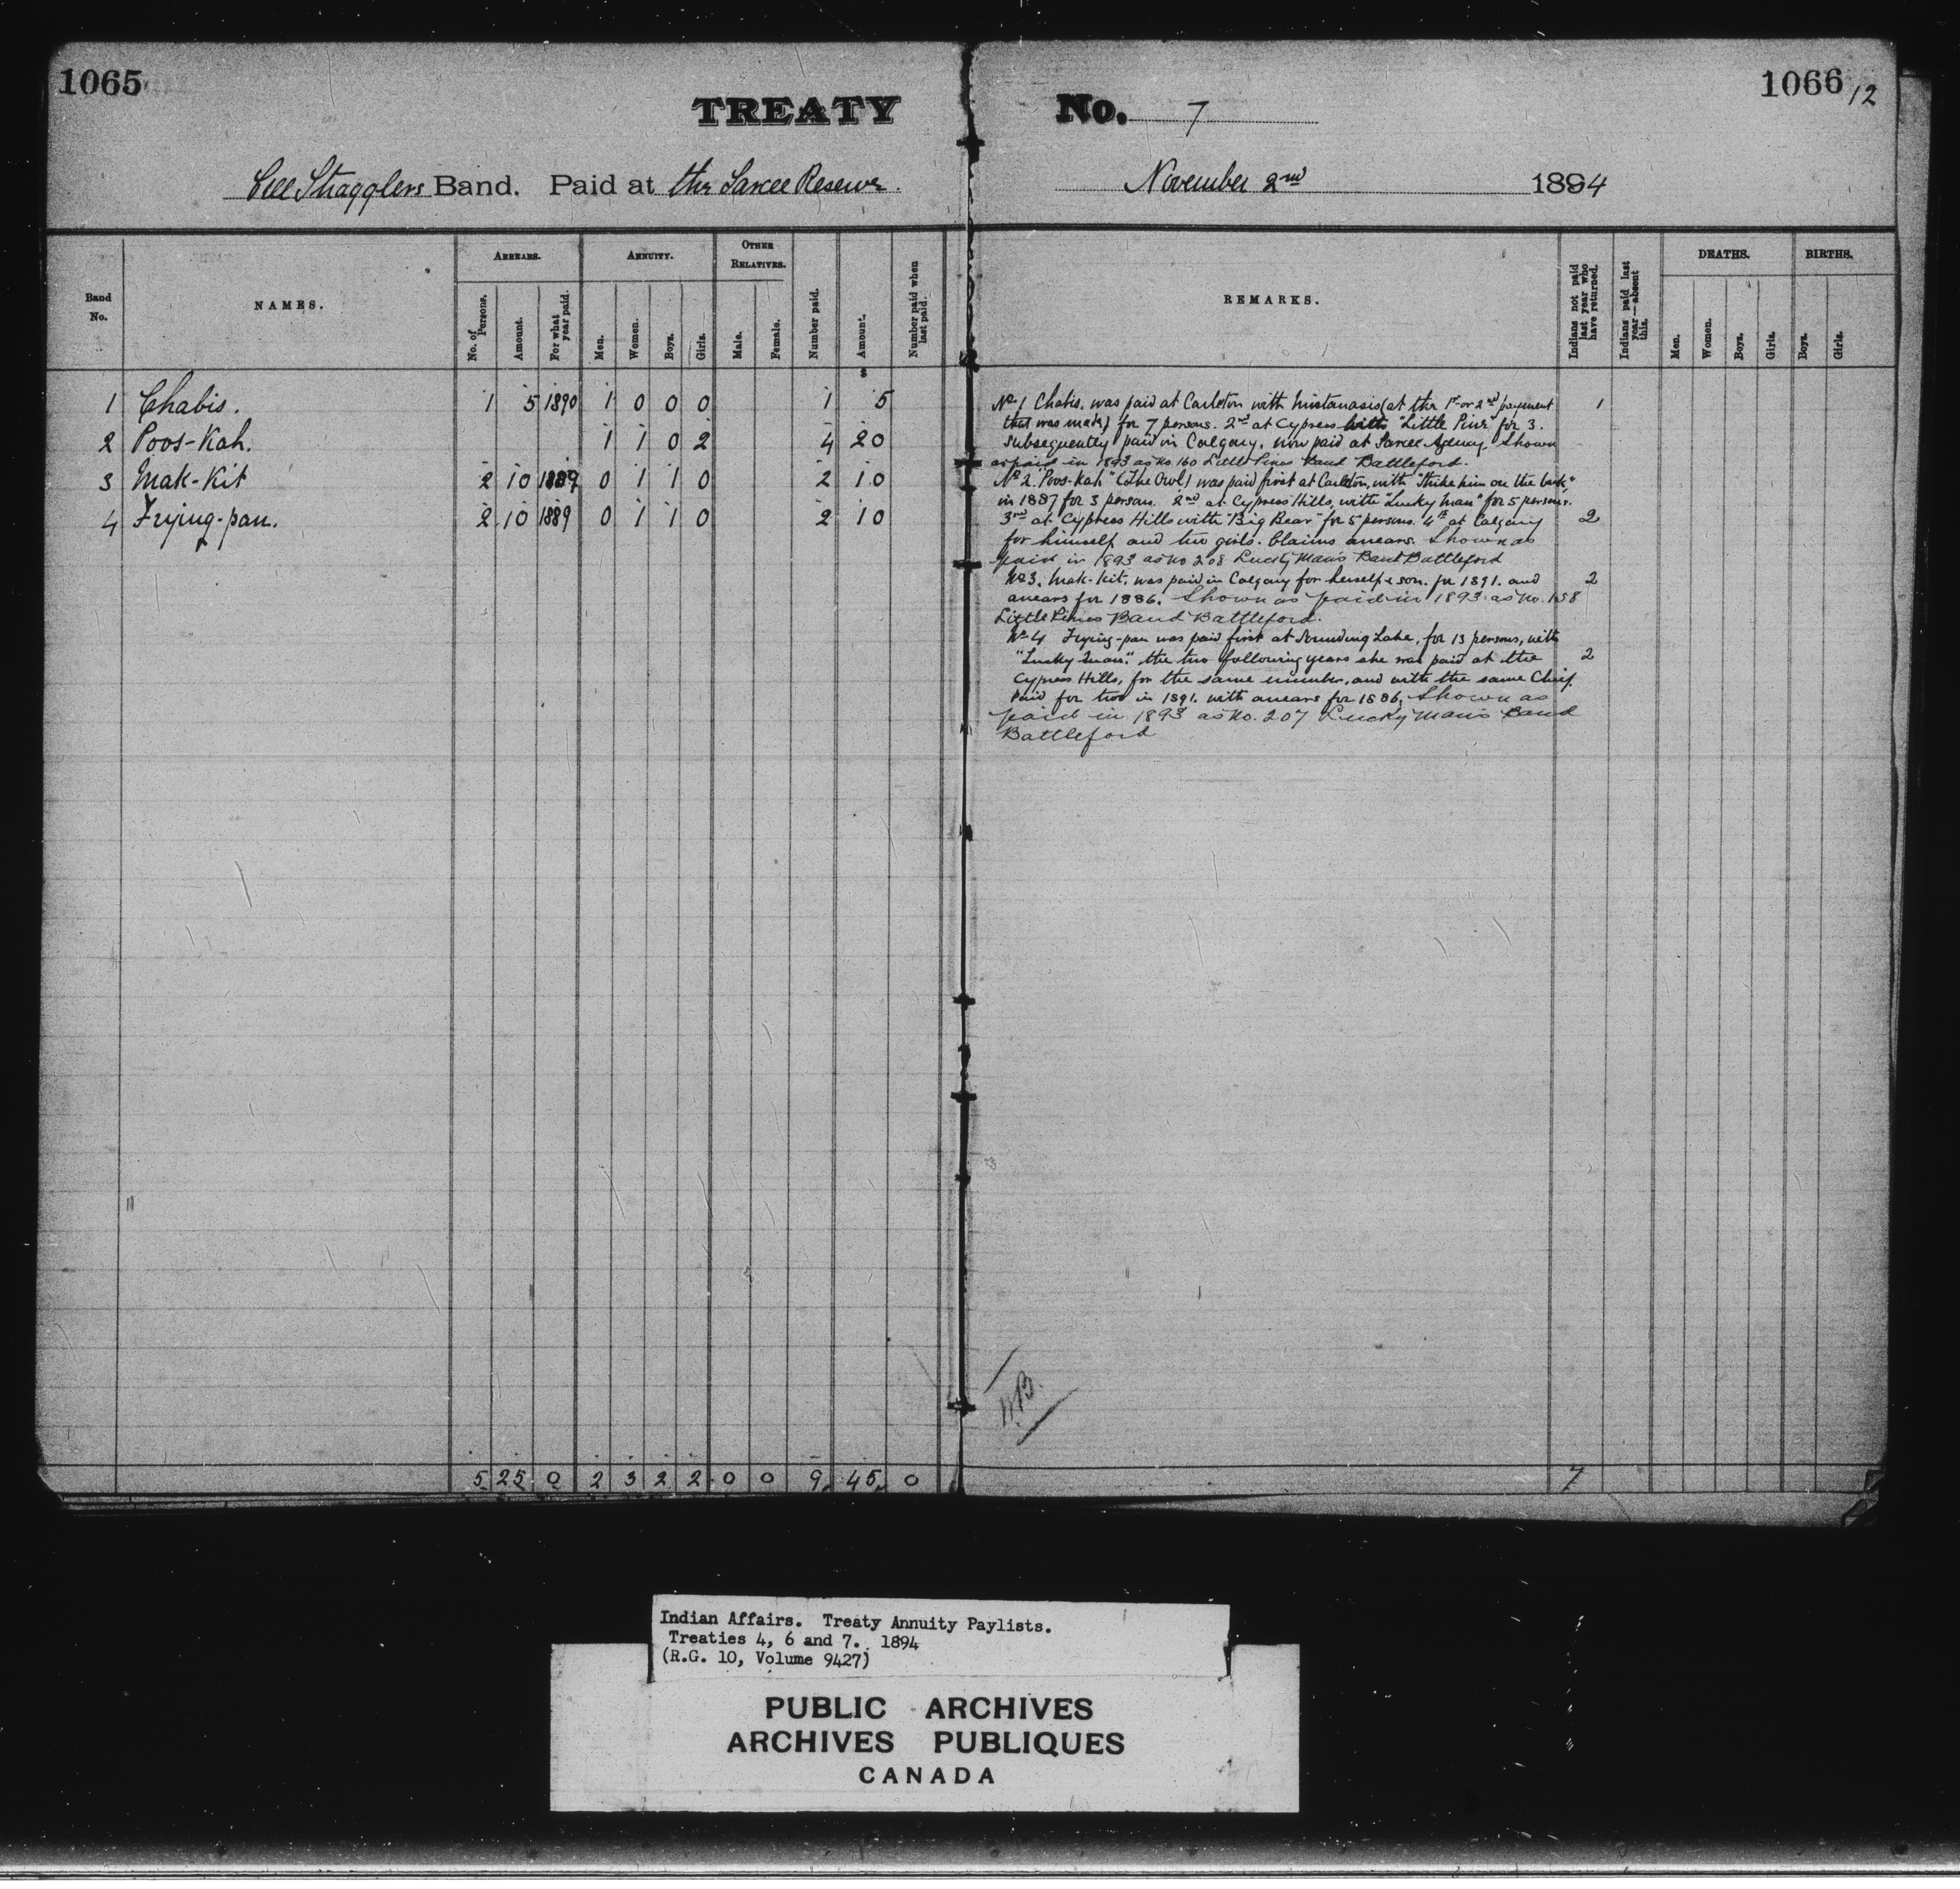 1065
1066
12
TREATY No. 7
Cree Stragglers Band. Paid at the Sarcee Reserve. November 2nd 1894
Band No.
NAMES.
ARREARS.
No. of Persons.
Amount.
For what year paid.
ANNUITY.
Men.
Women.
Boys.
Girls.
OTHER RELATIVES.
Male.
Female.
Number paid.
Amount.
Number paid when last paid.
REMARKS.
Indians not paid last year who have returned.
Indians paid last year—absent this.
DEATHS.
Men.
Women.
Boys.
Girls.
BIRTHS.
Boys.
Girls.
$
1 Chabis. 1 5 1890 1 0 0 0 1 5
2 Poos-Kah. 1 1 0 2 4 20
3 Mak-Kit 2 10 1889 0 1 1 0 2 10
4 Frying-pan. 2 10 1889 0 1 1 0 2 10
No 1 Chabis, was paid at Carleton with Mistanasis (at the 1st or 2nd payment 1
that was made) for 7 persons. 2nd at Cypress with "Little Pine" for 3.
Subsequently paid in Calgary, now paid at Sarcee Agency. Shown
as paid in 1893 as No. 160 Little Pines Band Battleford.
No 2. "Poos-Kah" (The Owl) was paid first at Carleton, with "Strike him on the back,"
in 1887 for 3 persons. 2nd at Cypress Hills, with "Lucky Man" for 5 persons.
3rd at Cypress Hills with "Big Bear" for 5 persons. 4th at Calgary 2
for himself and two girls. Claims arrears. Shown as
paid in 1893 as No 208 Lucky Mans Band Battleford
No 3. Mak-Kit, was paid in Calgary for herself & son. for 1891. and 2
arrears for 1886. Shown as paid in 1893 as No. 158
Little Pines Band Battleford.
No 4 Frying-pan was paid first at Sounding Lake, for 13 persons, with
"Lucky Man." the two following years she was paid at the 2
Cypress Hills, for the same number, and with the same Chief.
Paid for two in 1891. with arrears for 1886, Shown as
paid in 1893 as No. 207 Lucky Mans Band
Battleford
5 25 0 2 3 2 2 0 0 9 45 0 7
Indian Affairs. Treaty Annuity Paylists.
Treaties 4, 6 and 7. 1894
(R.G. 10, Volume 9427)
PUBLIC ARCHIVES
ARCHIVES PUBLIQUES
CANADA